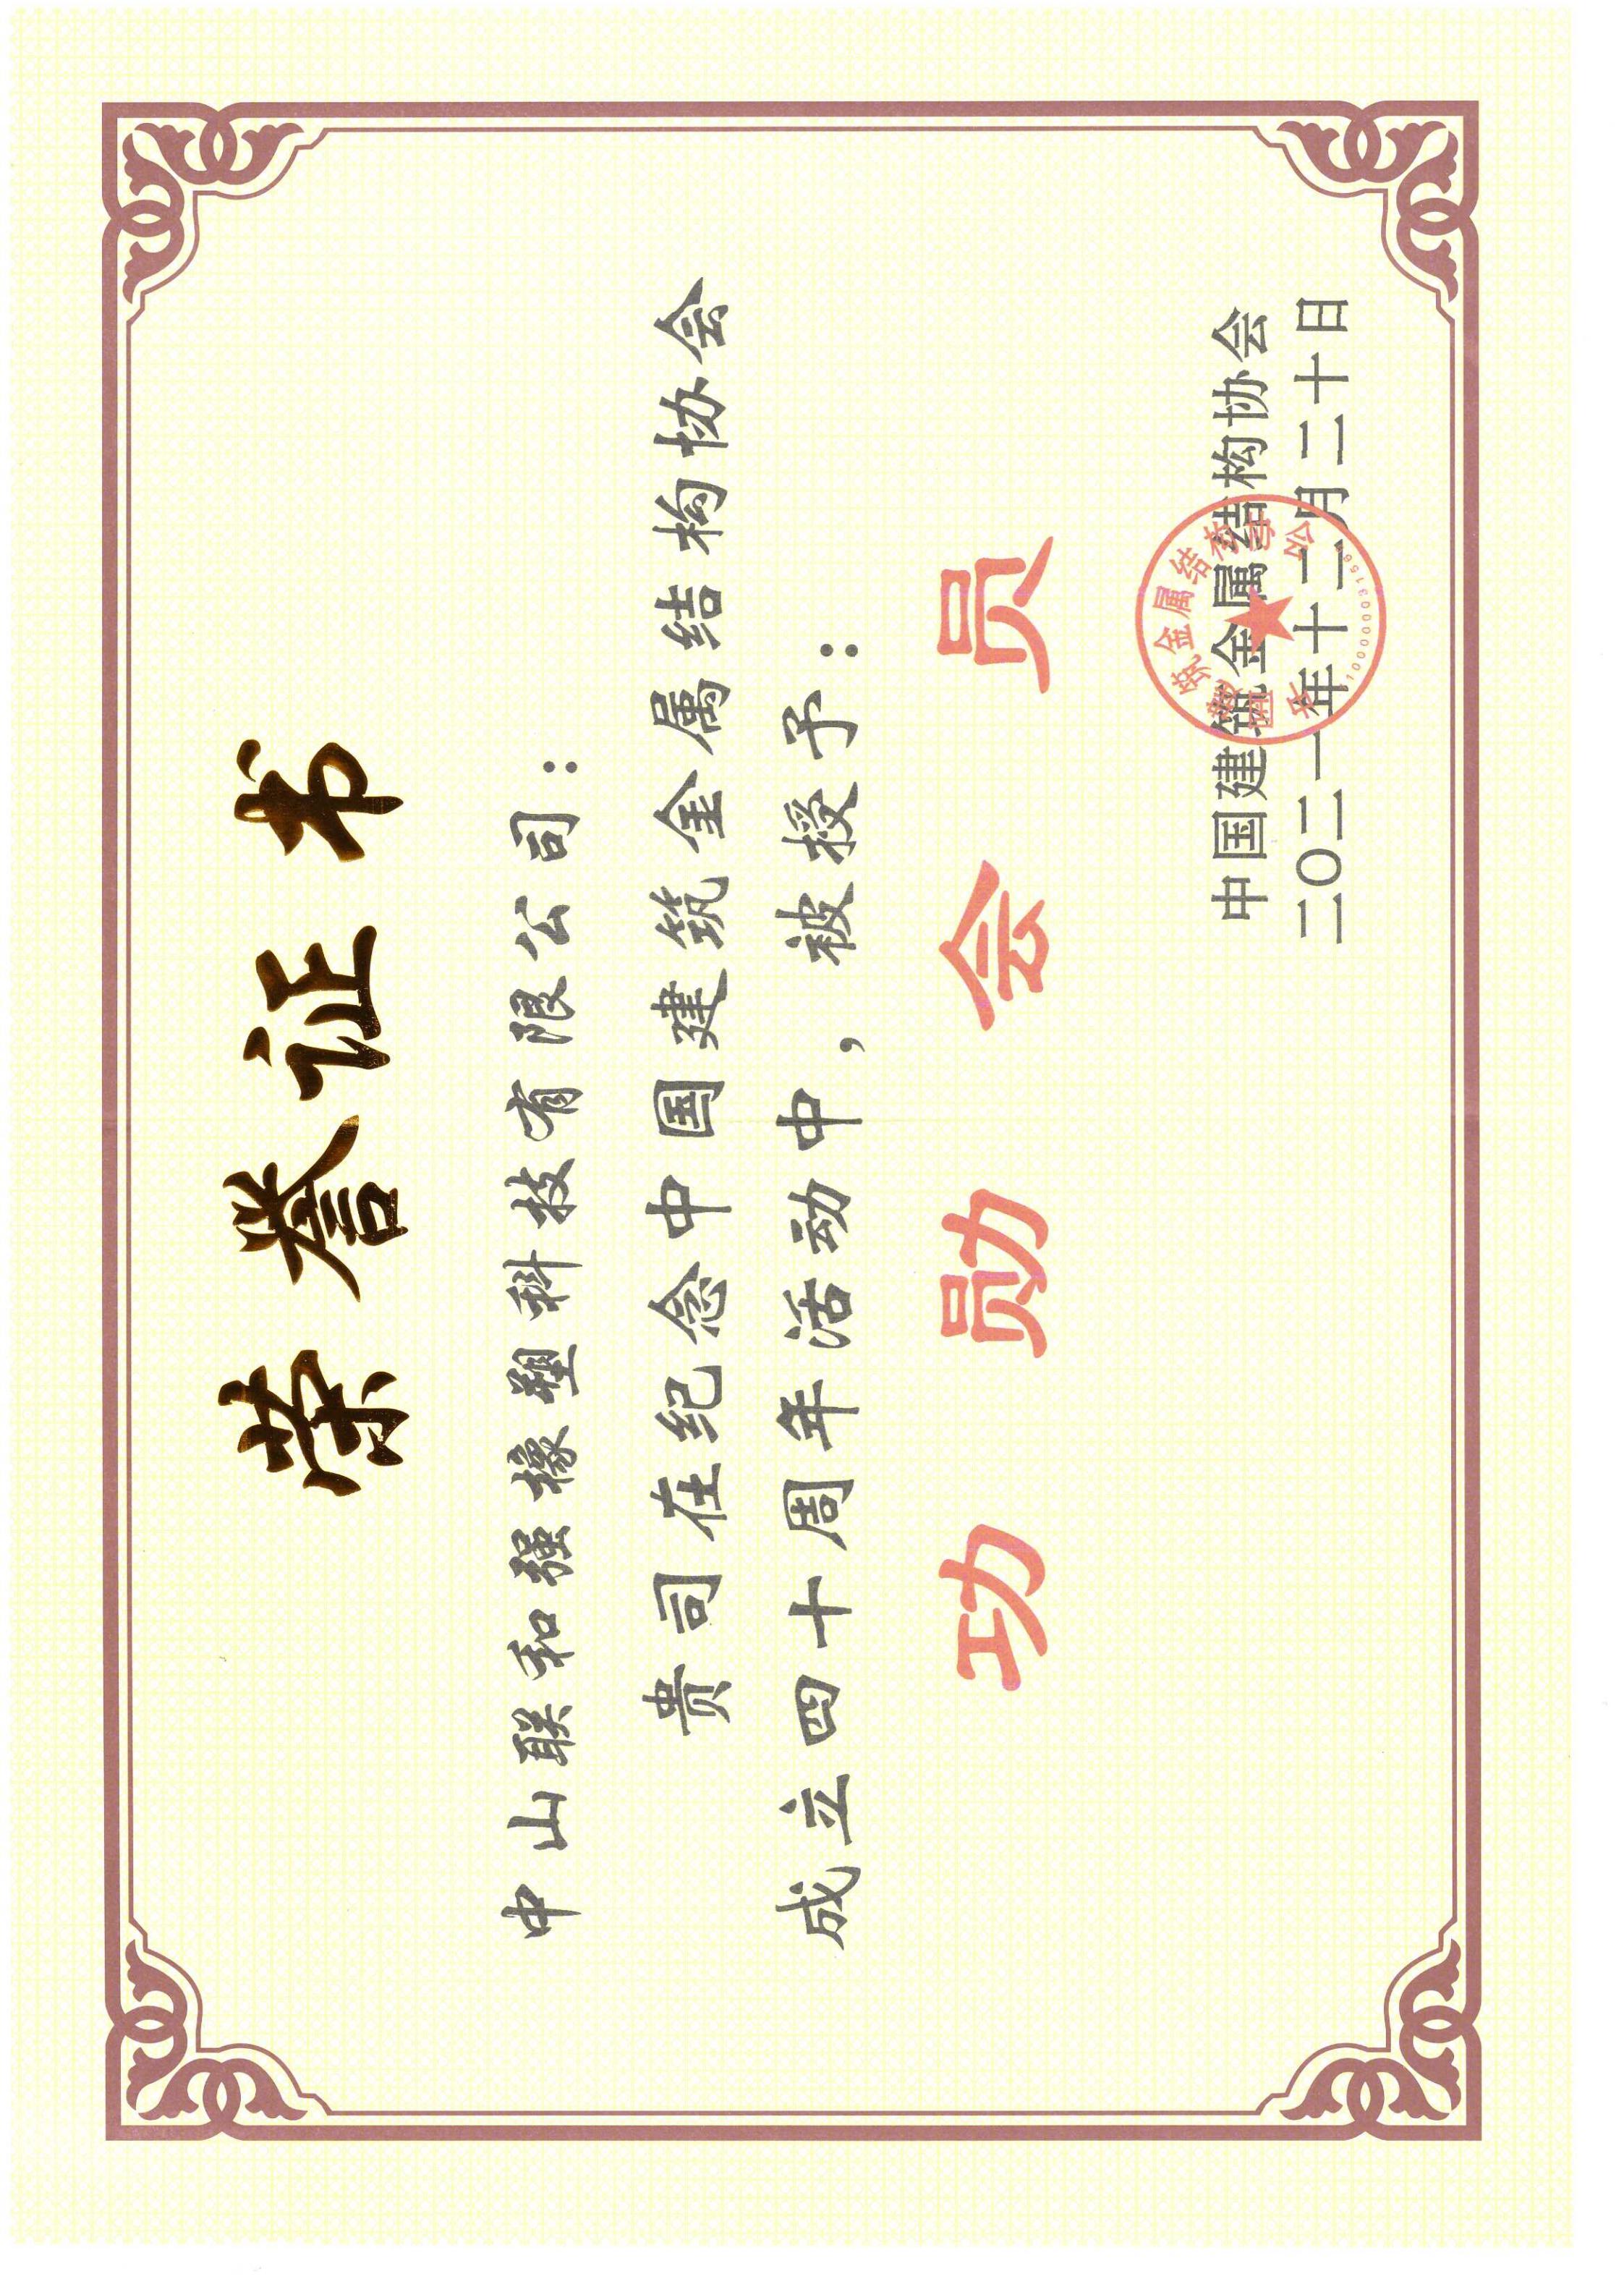 荣誉证书
中山联和强橡塑科技有限公司：
贵司在纪念中国建筑金属结构协会
成立四十周年活动中，被授予：
功勋会员
中国建筑金属结构协会
二〇二一年十二月二十日